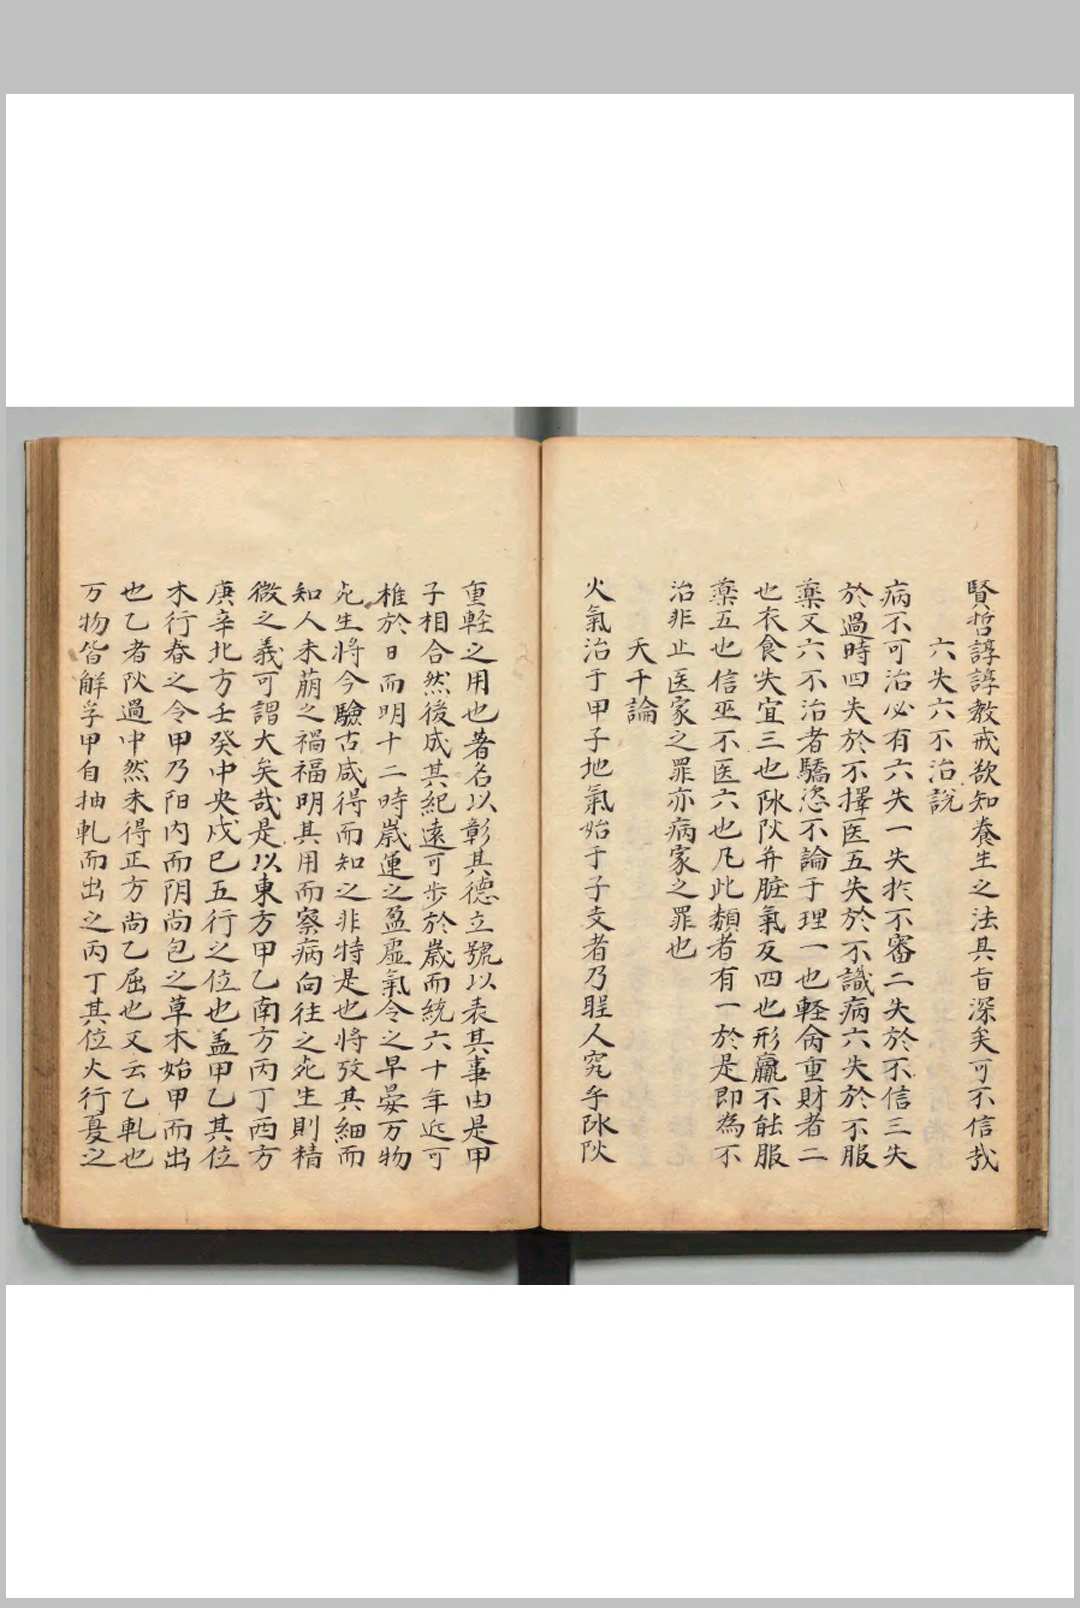 賢哲諄諄教戒欲知養生之法具旨深矣可不信哉
六失六不治說
病不可治必有六失一失於不審二失於不信三失
於過時四失於不擇医五失於不識病六失於不服
藥又六不治者驕恣不論于理一也軽命重財者二
也衣食失宜三也阥阦并脏氣反四也形羸不能服
藥五也信巫不医六也凡此類者有一於是即為不
治非止医家之罪亦病家之罪也
天干論
火氣治于甲子地氣始于子支者乃聖人究乎阥阦
重軽之用也著名以彰其德立號以表其事由是甲
子相合然後成其紀遠可步於歲而統六十年近可
推於日而明十二時歲運之盈虛氣令之早晏万物
死生将今驗古咸得而知之非特是也將攷其細而
知人未萠之禍福明其用而察病向往之死生則精
微之義可謂大矣哉是以東方甲乙南方丙丁西方
庚辛北方壬癸中央戊巳五行之位也盖甲乙其位
木行春之令甲乃阳内而阴尚包之草木始甲而出
也乙者阦過中然未得正方尚乙屈也又云乙軋也
万物皆解孚甲自抽軋而出之丙丁其位火行夏之